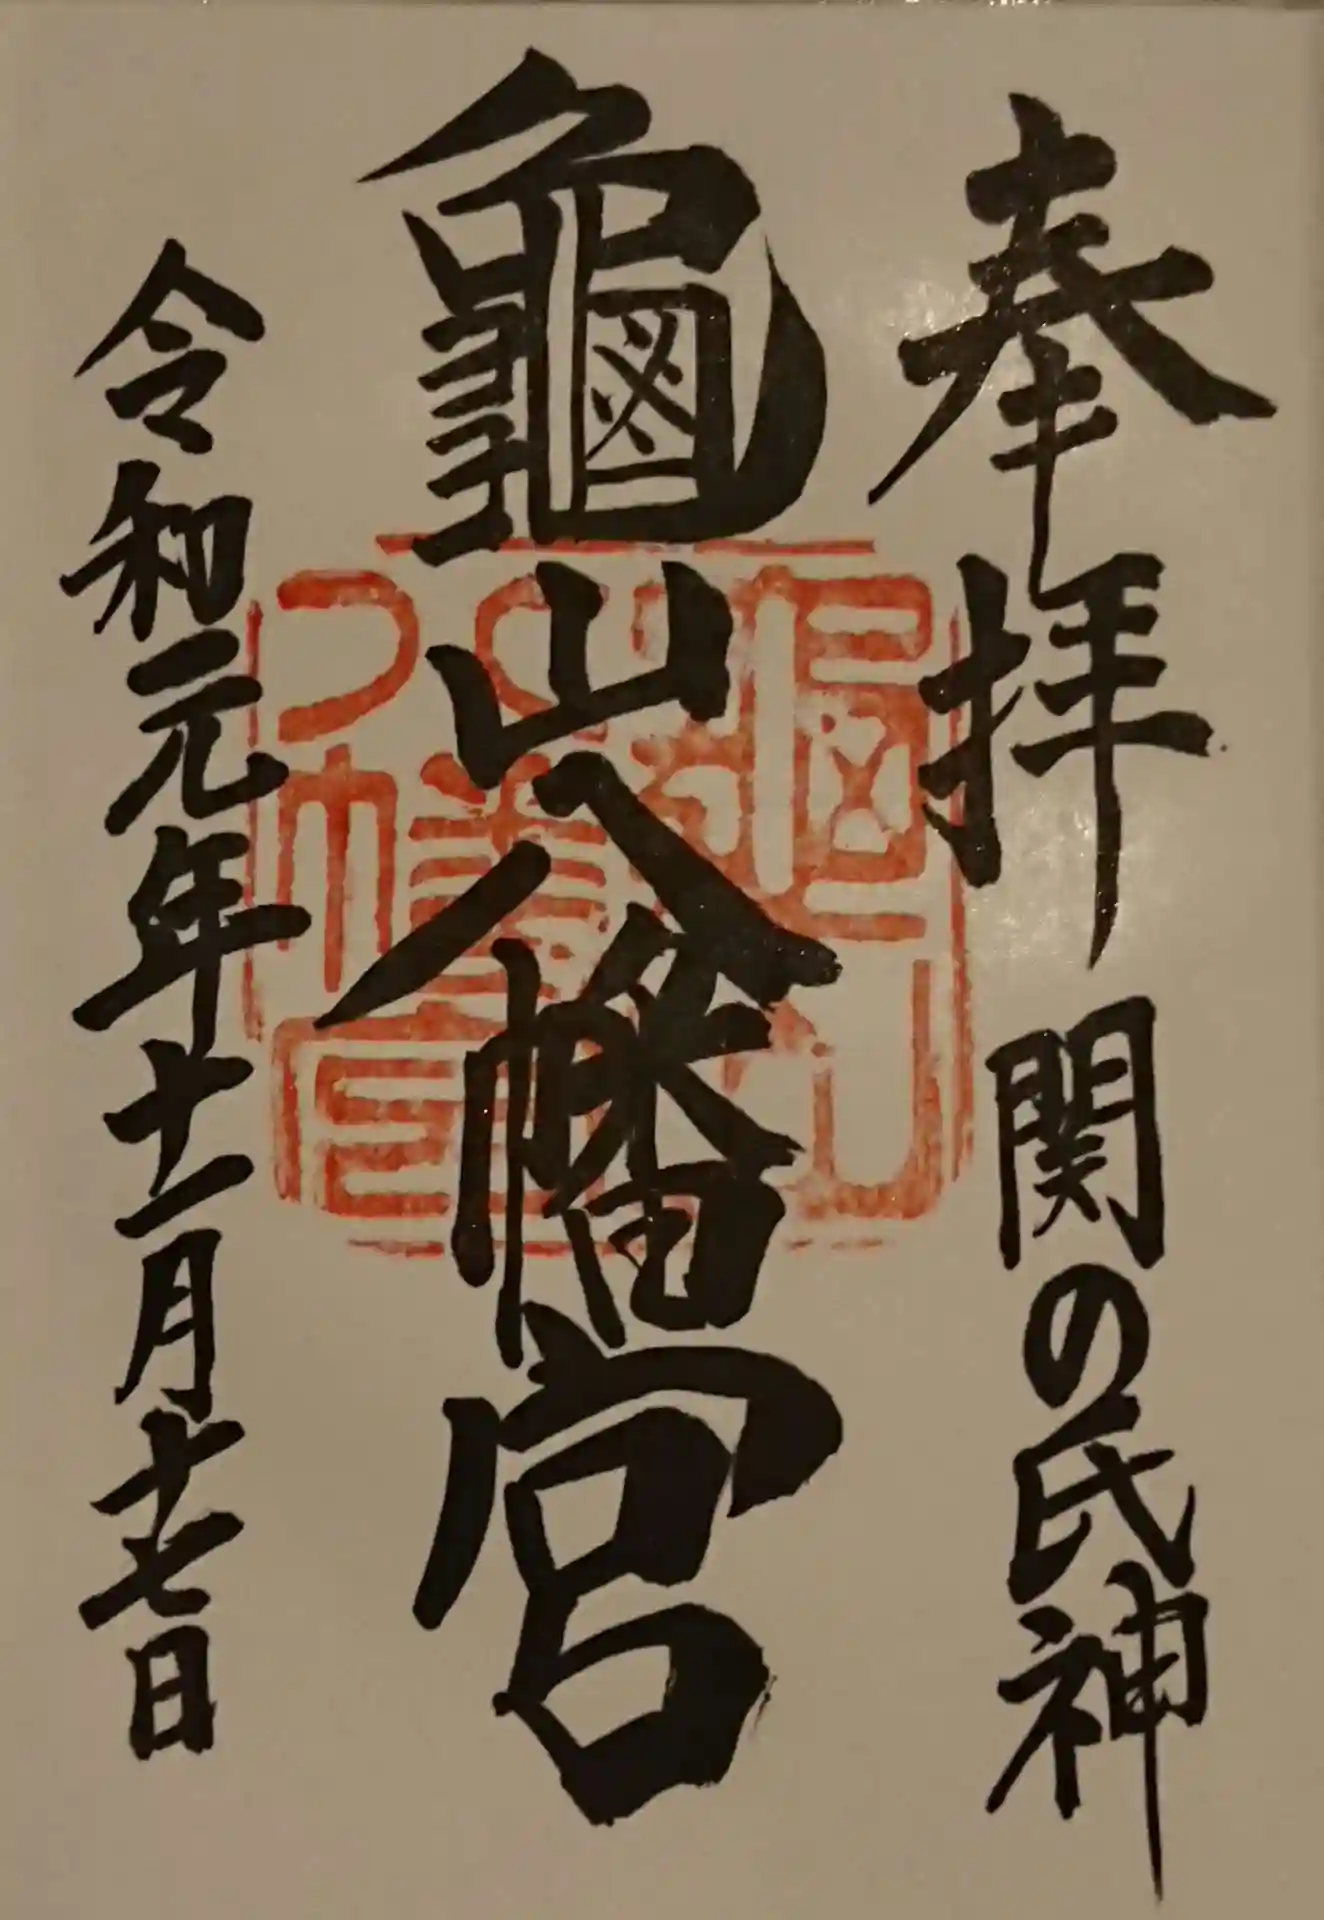 奉拝 関の氏神
龜山八幡宮
令和元年十一月十七日
龜山八幡宮